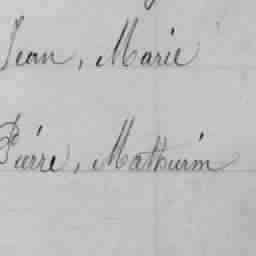 Jean, Marie
Pierre, Mathurin